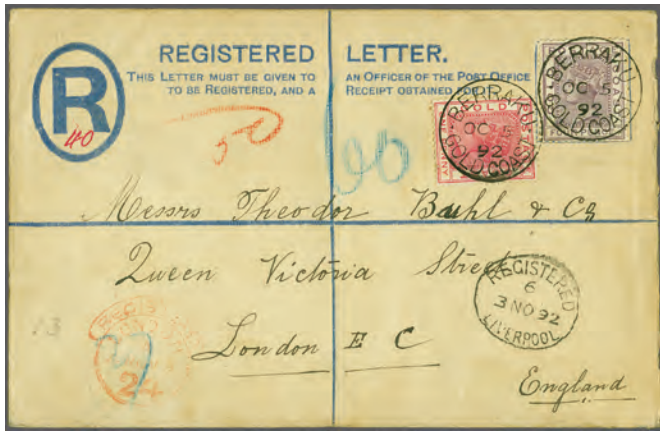 REGISTERED LETTER.
THIS LETTER MUST BE GIVEN TO AN OFFICER OF THE POST OFFICE
TO BE REGISTERED, AND A RECEIPT OBTAINED FOR
R
40
BERRAKU
OC 5
92
GOLD COAST
BERRAKU
OC 5
92
GOLD COAST
Messrs Theodor Buhl & Co
Queen Victoria Street
London E C
England
REGISTERED
6
3 NO 92
LIVERPOOL
24